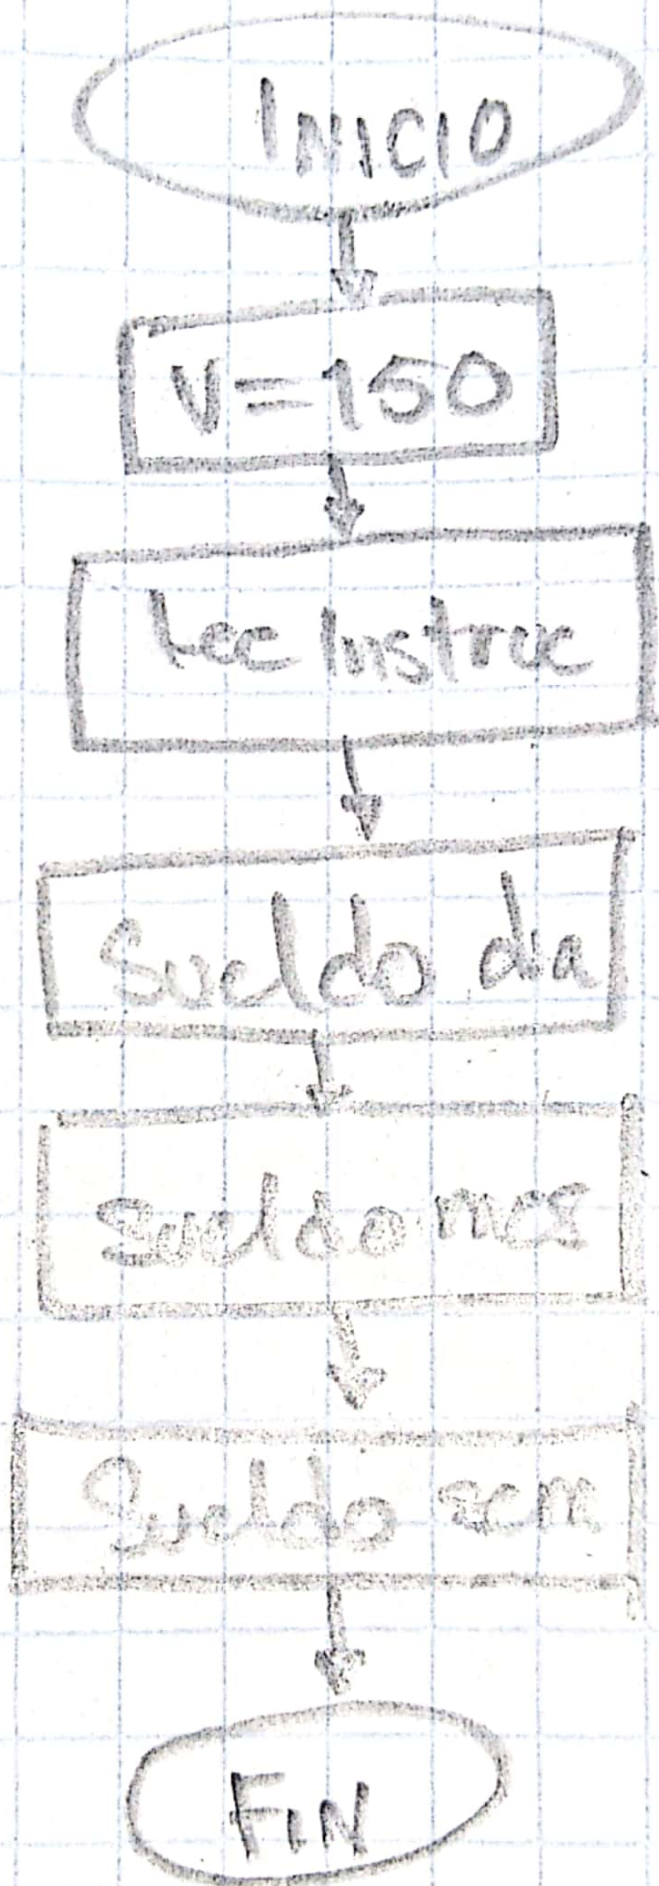 INICIO
V=150
Lee Instruc
Sueldo dia
Sueldo mes
Sueldo sem
FIN